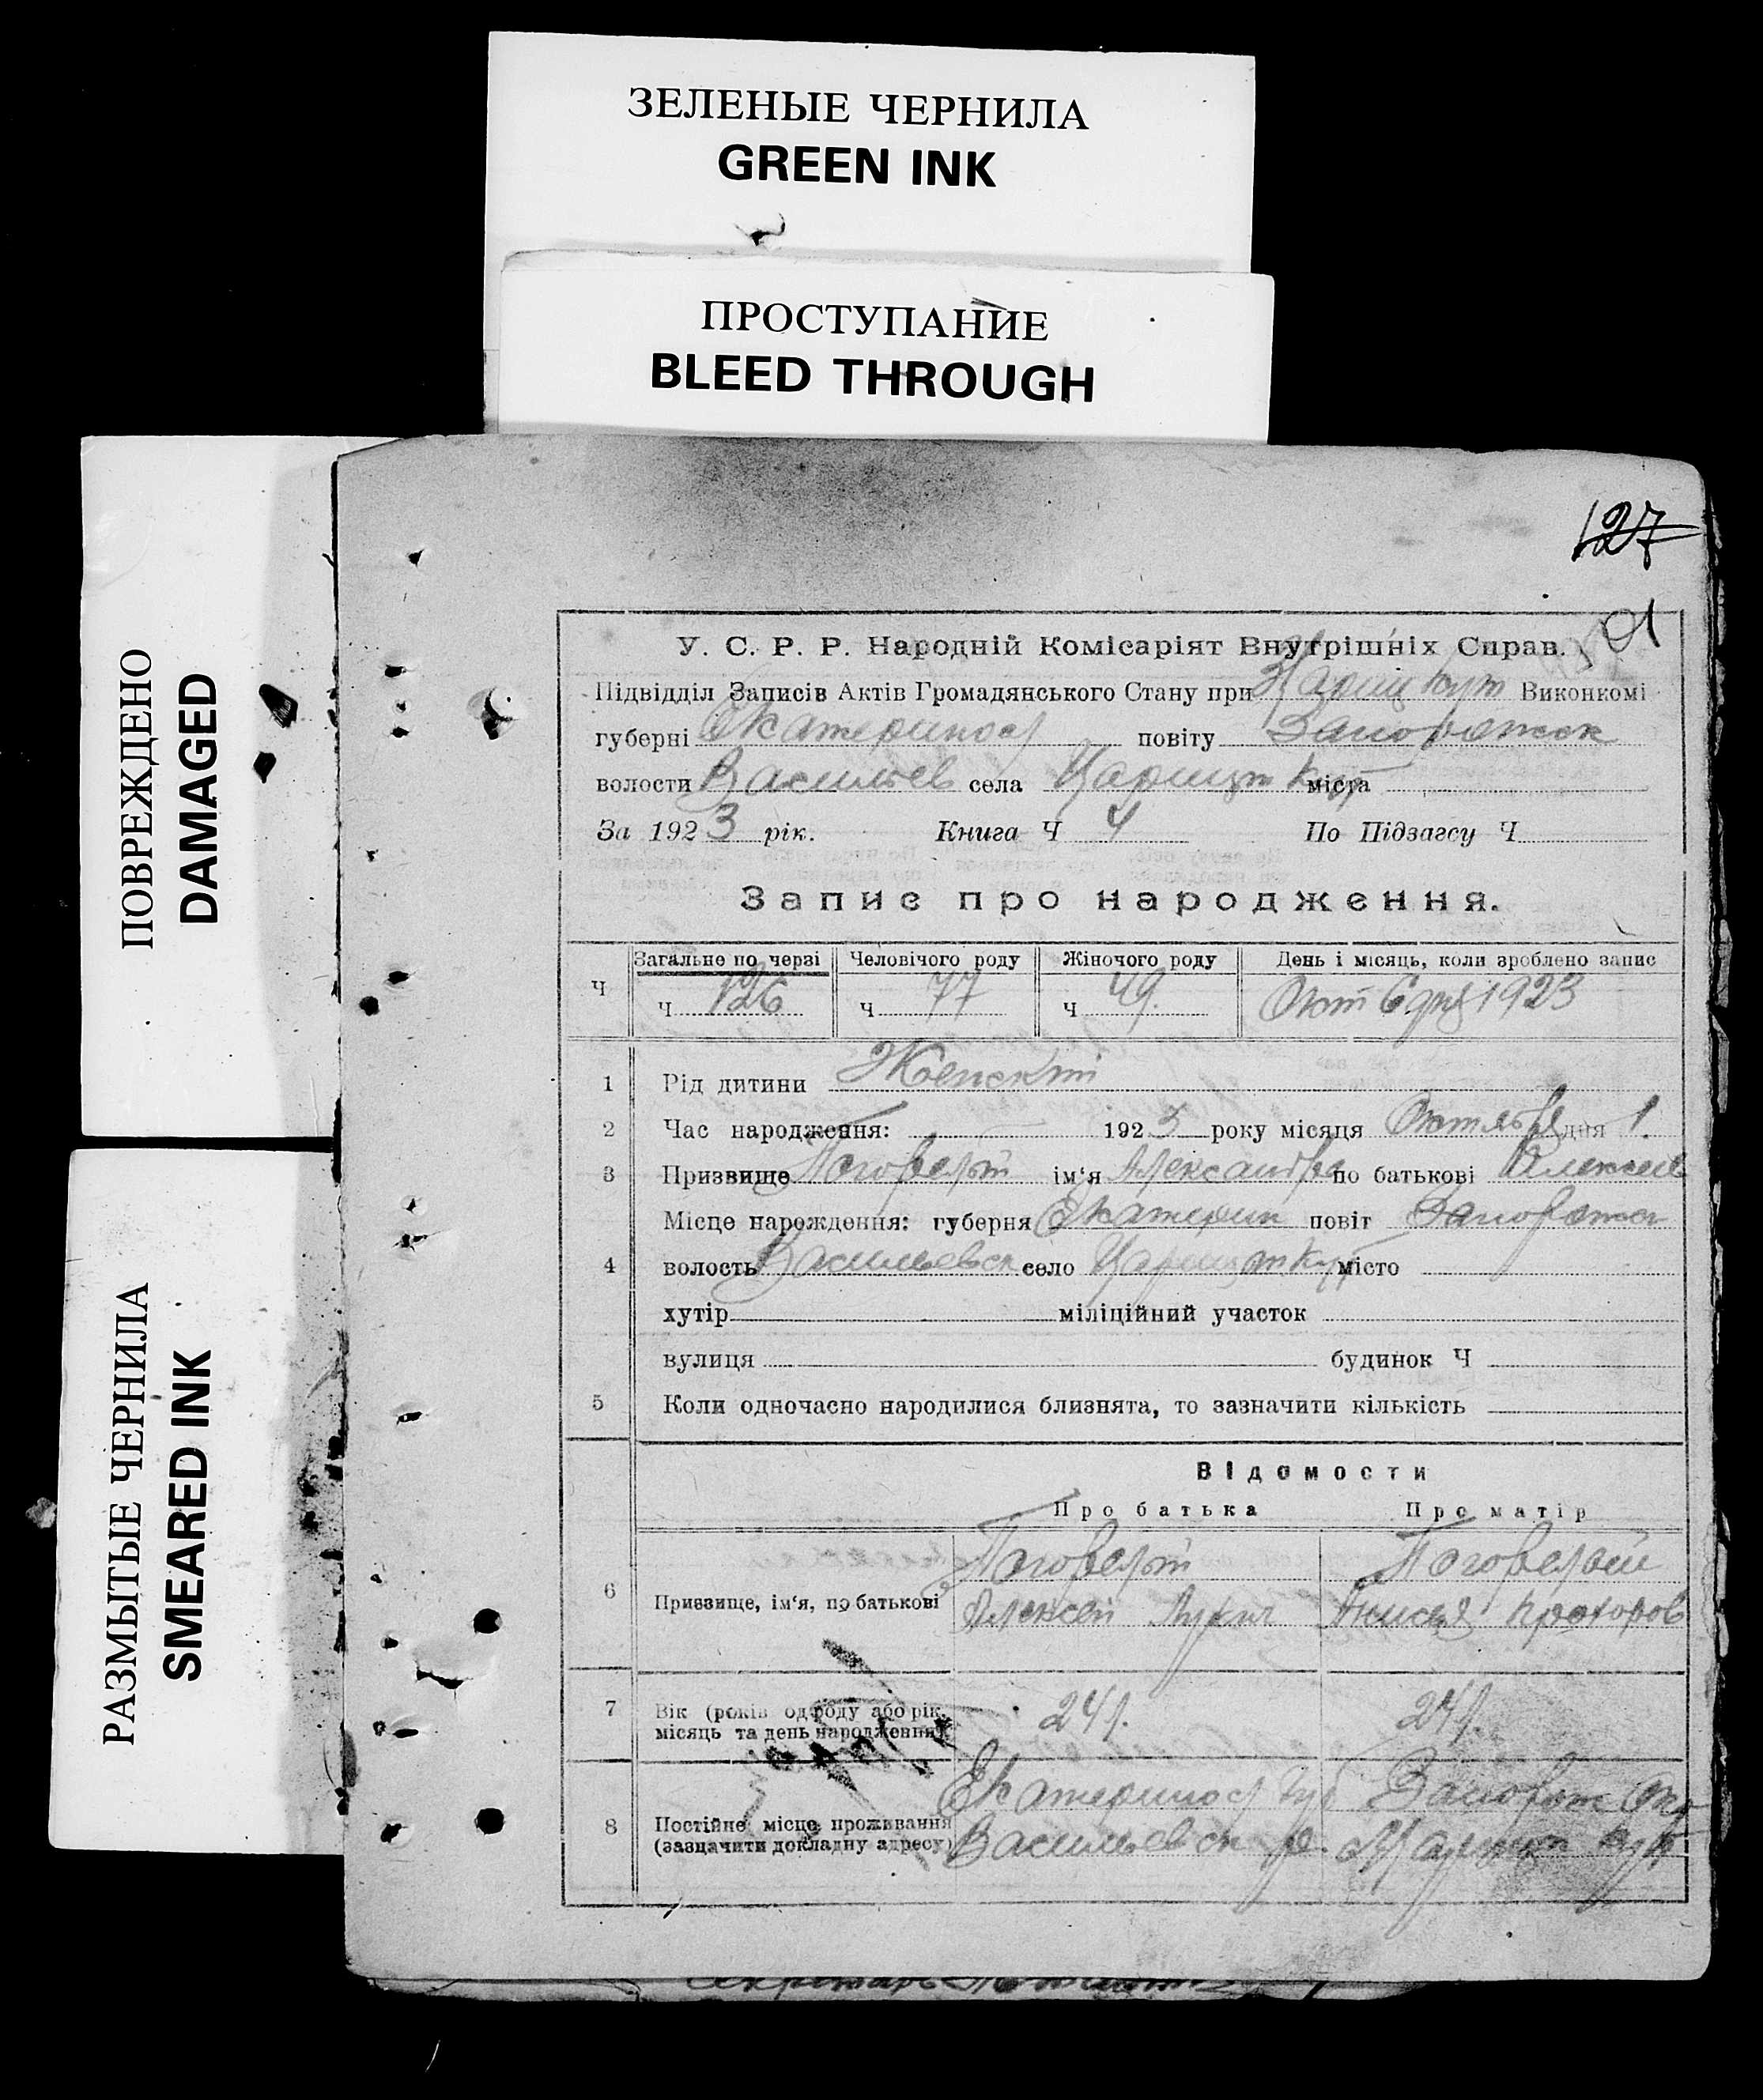 ЗЕЛЕНЫЕ ЧЕРНИЛА
GREEN INK
ПРОСТУПАНИЕ
BLEED THROUGH
ПОВРЕЖДЕНО
DAMAGED
РАЗМЫТЫЕ ЧЕРНИЛА
SMEARED INK
127
У. С. Р. Р. Народній Комісаріят Внутрішніх Справ.
Підвідділ Записів Актів Громадянського Стану при Цариц Кут Виконкомі
губерні Екатеринос повіту Запорожск
волости Васильев села Царицын Кут міста
За 1923 рік. Книга Ч 4 По Підзагсу Ч
Запис про народження.
Ч Загальне по черзі Человічого роду Жіночого роду День і місяць, коли зроблено запис
Ч 126 Ч 77 Ч 49. Окт 6 дня 1923
1 Рід дитини Женский
2 Час народження: 1923 року місяця Октября дня 1.
3 Призвище Погорелый ім'я Александра по батькові Алексеев
Місце нарождення: губерня Екатерин повіт Запорожск
4 волость Васильевск село Царицын Кут місто
хутір міліційний участок
вулиця будинок Ч
5 Коли одночасно народилися близнята, то зазначити кількість
Відомости
Про батька Про матір
6 Призвище, ім'я, по батькові
Погорелый Погорелый
Алексей Лукич Анисия Прохоров
7 Вік (років од роду або рік, місяць та день народження)
24 г. 24 г.
8 Постійне місце проживання (зазначити докладну адресу)
Екатеринос губ Запорож Окр
Васильевск р. Царицын Кут